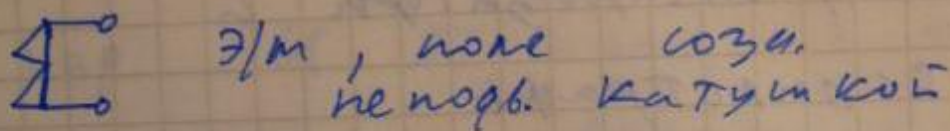 Э/т, поле созд.
неподв. катушкой